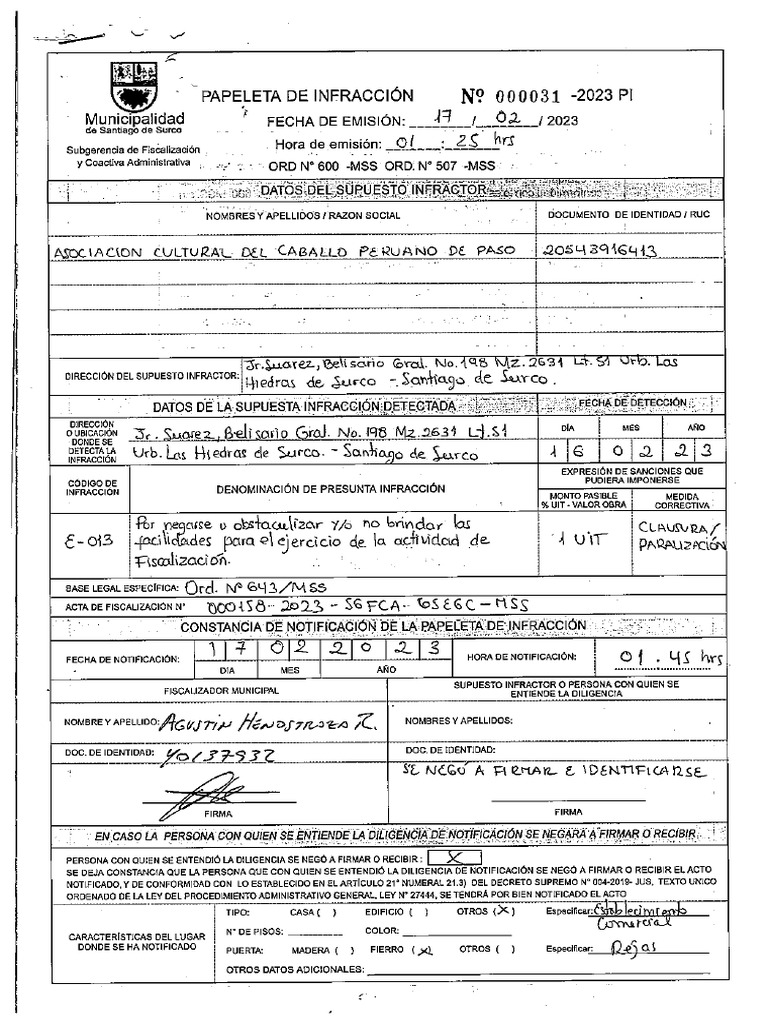 Municipalidad
de Santiago de Surco
Subgerencia de Fiscalización
y Coactiva Administrativa
PAPELETA DE INFRACCIÓN Nº 000031 -2023 PI
FECHA DE EMISIÓN: 17 / 02 / 2023
Hora de emisión: 01 : 25 hrs
ORD N° 600 -MSS ORD. N° 507 -MSS
DATOS DEL SUPUESTO INFRACTOR
NOMBRES Y APELLIDOS / RAZON SOCIAL DOCUMENTO DE IDENTIDAD / RUC
ASOCIACION CULTURAL DEL CABALLO PERUANO DE PASO 20543916413
DIRECCIÓN DEL SUPUESTO INFRACTOR: Jr. Suarez, Belisario Gral. No. 198 Mz. 2631 Lt. S1 Urb. Las
Hiedras de Surco - Santiago de Surco.
DATOS DE LA SUPUESTA INFRACCIÓN DETECTADA FECHA DE DETECCIÓN
DIRECCIÓN
O UBICACIÓN
DONDE SE
DETECTA LA
INFRACCIÓN
Jr. Suarez, Belisario Gral. No. 198 Mz. 2631 Lt. S1
Urb. Las Hiedras de Surco. - Santiago de Surco
DÍA MES AÑO
1 6 0 2 2 3
CÓDIGO DE
INFRACCIÓN
DENOMINACIÓN DE PRESUNTA INFRACCIÓN
EXPRESIÓN DE SANCIONES QUE
PUDIERA IMPONERSE
MONTO PASIBLE
% UIT - VALOR OBRA
MEDIDA
CORRECTIVA
E-013
Por negarse u obstaculizar y/o no brindar las
facilidades para el ejercicio de la actividad de
Fiscalización.
1 UIT
CLAUSURA/
PARALIZACIÓN
BASE LEGAL ESPECÍFICA: Ord. Nº 643/MSS
ACTA DE FISCALIZACIÓN N° 000158-2023-SGFCA-GSEGC-MSS
CONSTANCIA DE NOTIFICACIÓN DE LA PAPELETA DE INFRACCIÓN
FECHA DE NOTIFICACIÓN: 1 7 0 2 2 0 2 3 HORA DE NOTIFICACIÓN: 01.45 hrs
DIA MES AÑO
FISCALIZADOR MUNICIPAL
SUPUESTO INFRACTOR O PERSONA CON QUIEN SE
ENTIENDE LA DILIGENCIA
NOMBRE Y APELLIDO: AGUSTÍN HENOSTROZA R. NOMBRES Y APELLIDOS:
DOC. DE IDENTIDAD: 40137932 DOC. DE IDENTIDAD:
SE NEGÓ A FIRMAR E IDENTIFICARSE
FIRMA FIRMA
EN CASO LA PERSONA CON QUIEN SE ENTIENDE LA DILIGENCIA DE NOTIFICACIÓN SE NEGARA A FIRMAR O RECIBIR
PERSONA CON QUIEN SE ENTENDIÓ LA DILIGENCIA SE NEGÓ A FIRMAR O RECIBIR : X
SE DEJA CONSTANCIA QUE LA PERSONA QUE CON QUIEN SE ENTENDIÓ LA DILIGENCIA DE NOTIFICACIÓN SE NEGO A FIRMAR O RECIBIR EL ACTO
NOTIFICADO, Y DE CONFORMIDAD CON LO ESTABLECIDO EN EL ARTÍCULO 21° NUMERAL 21.3) DEL DECRETO SUPREMO N° 004-2019- JUS, TEXTO UNICO
ORDENADO DE LA LEY DEL PROCEDIMIENTO ADMINISTRATIVO GENERAL, LEY N° 27444, SE TENDRÁ POR BIEN NOTIFICADO EL ACTO
CARACTERÍSTICAS DEL LUGAR
DONDE SE HA NOTIFICADO
TIPO: CASA ( ) EDIFICIO ( ) OTROS (X) Especificar: Establecimiento
Comercial
N° DE PISOS: COLOR:
PUERTA: MADERA ( ) FIERRO (X) OTROS ( ) Especificar: Rejas
OTROS DATOS ADICIONALES: